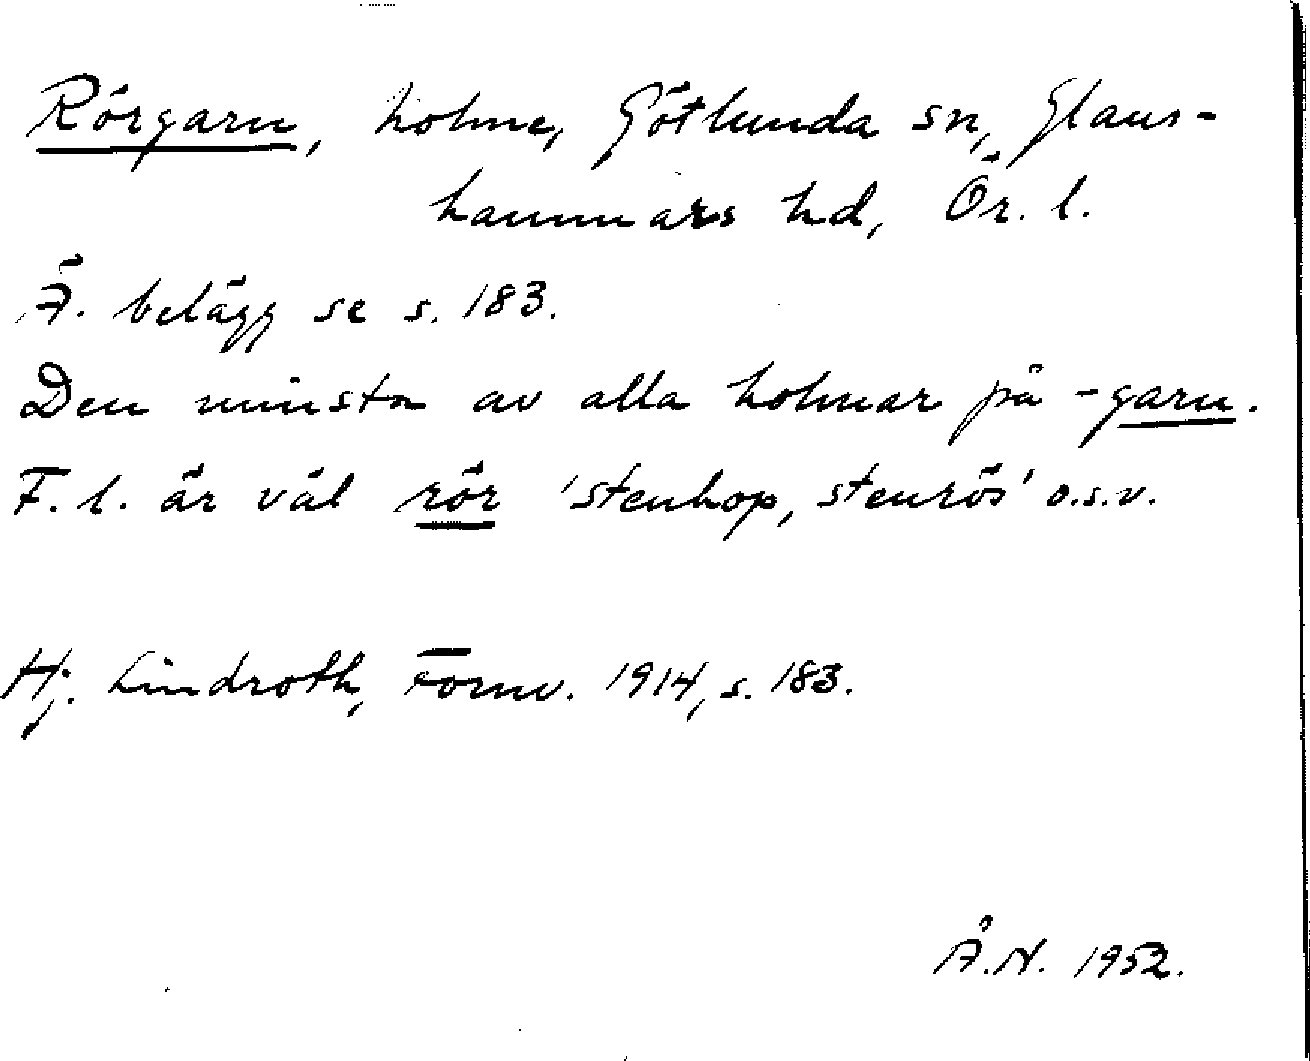 Rörgarn, holme, Götlunda sn, Glans-
hammars hd, Ör. l.
Ä. belägg se s. 183.
Den minsta av alla holmar på -garn.
F. l. är väl rör 'stenhop, stenrös' o.s.v.
Hj. Lindroth, Fornv. 1914, s. 183.
Å.N. 1952.